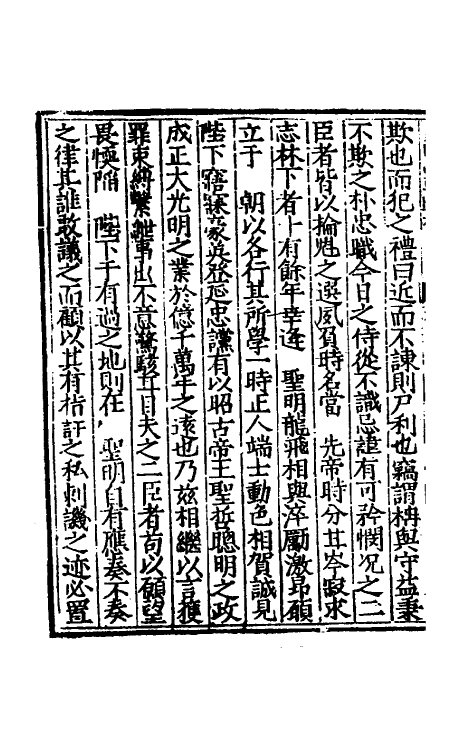 欺也而犯之禮曰近而不諫則尸利也竊謂柟與守益秉
不欺之朴忠職今日之侍從不識忌諱有可矜憫况之二
臣者皆以掄魁之選夙負時名當 先帝時分其岑寂求
志林下者十有餘年幸逢 聖明龍飛相與淬勵激昂願
立于 朝以各行其所學一時正人端士動色相賀誠見
陛下寤寐豪英登延忠讜有以昭古帝王聖哲聰明之政
成正大光明之業於億千萬年之遠也乃玆相繼以言獲
罪束縛繫紲事出不意驚駭耳目夫之二臣者苟以顧望
畏懦陷 陛下于有過之地則在 聖明自有應奏不奏
之律其誰敢議之而顧以其有指訐之私刺譏之迹必置